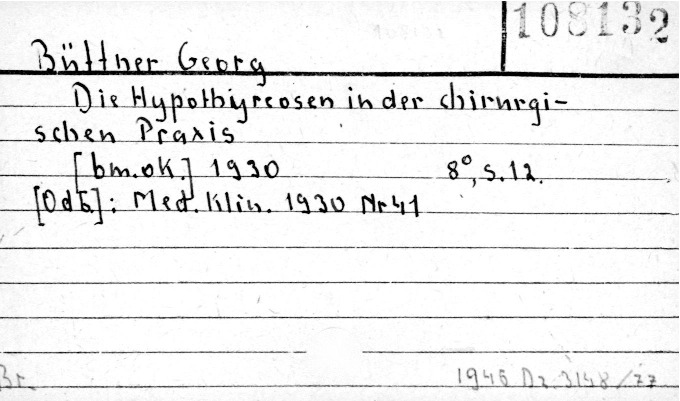 108132
Büttner Georg
Die Hypothyreosen in der chirurgi-
schen Praxis
[bm.ok.] 1930 8°, s. 12.
[Odb.]: Med. Klin. 1930 Nr 41
Br.
1945 Dz. 3148/77